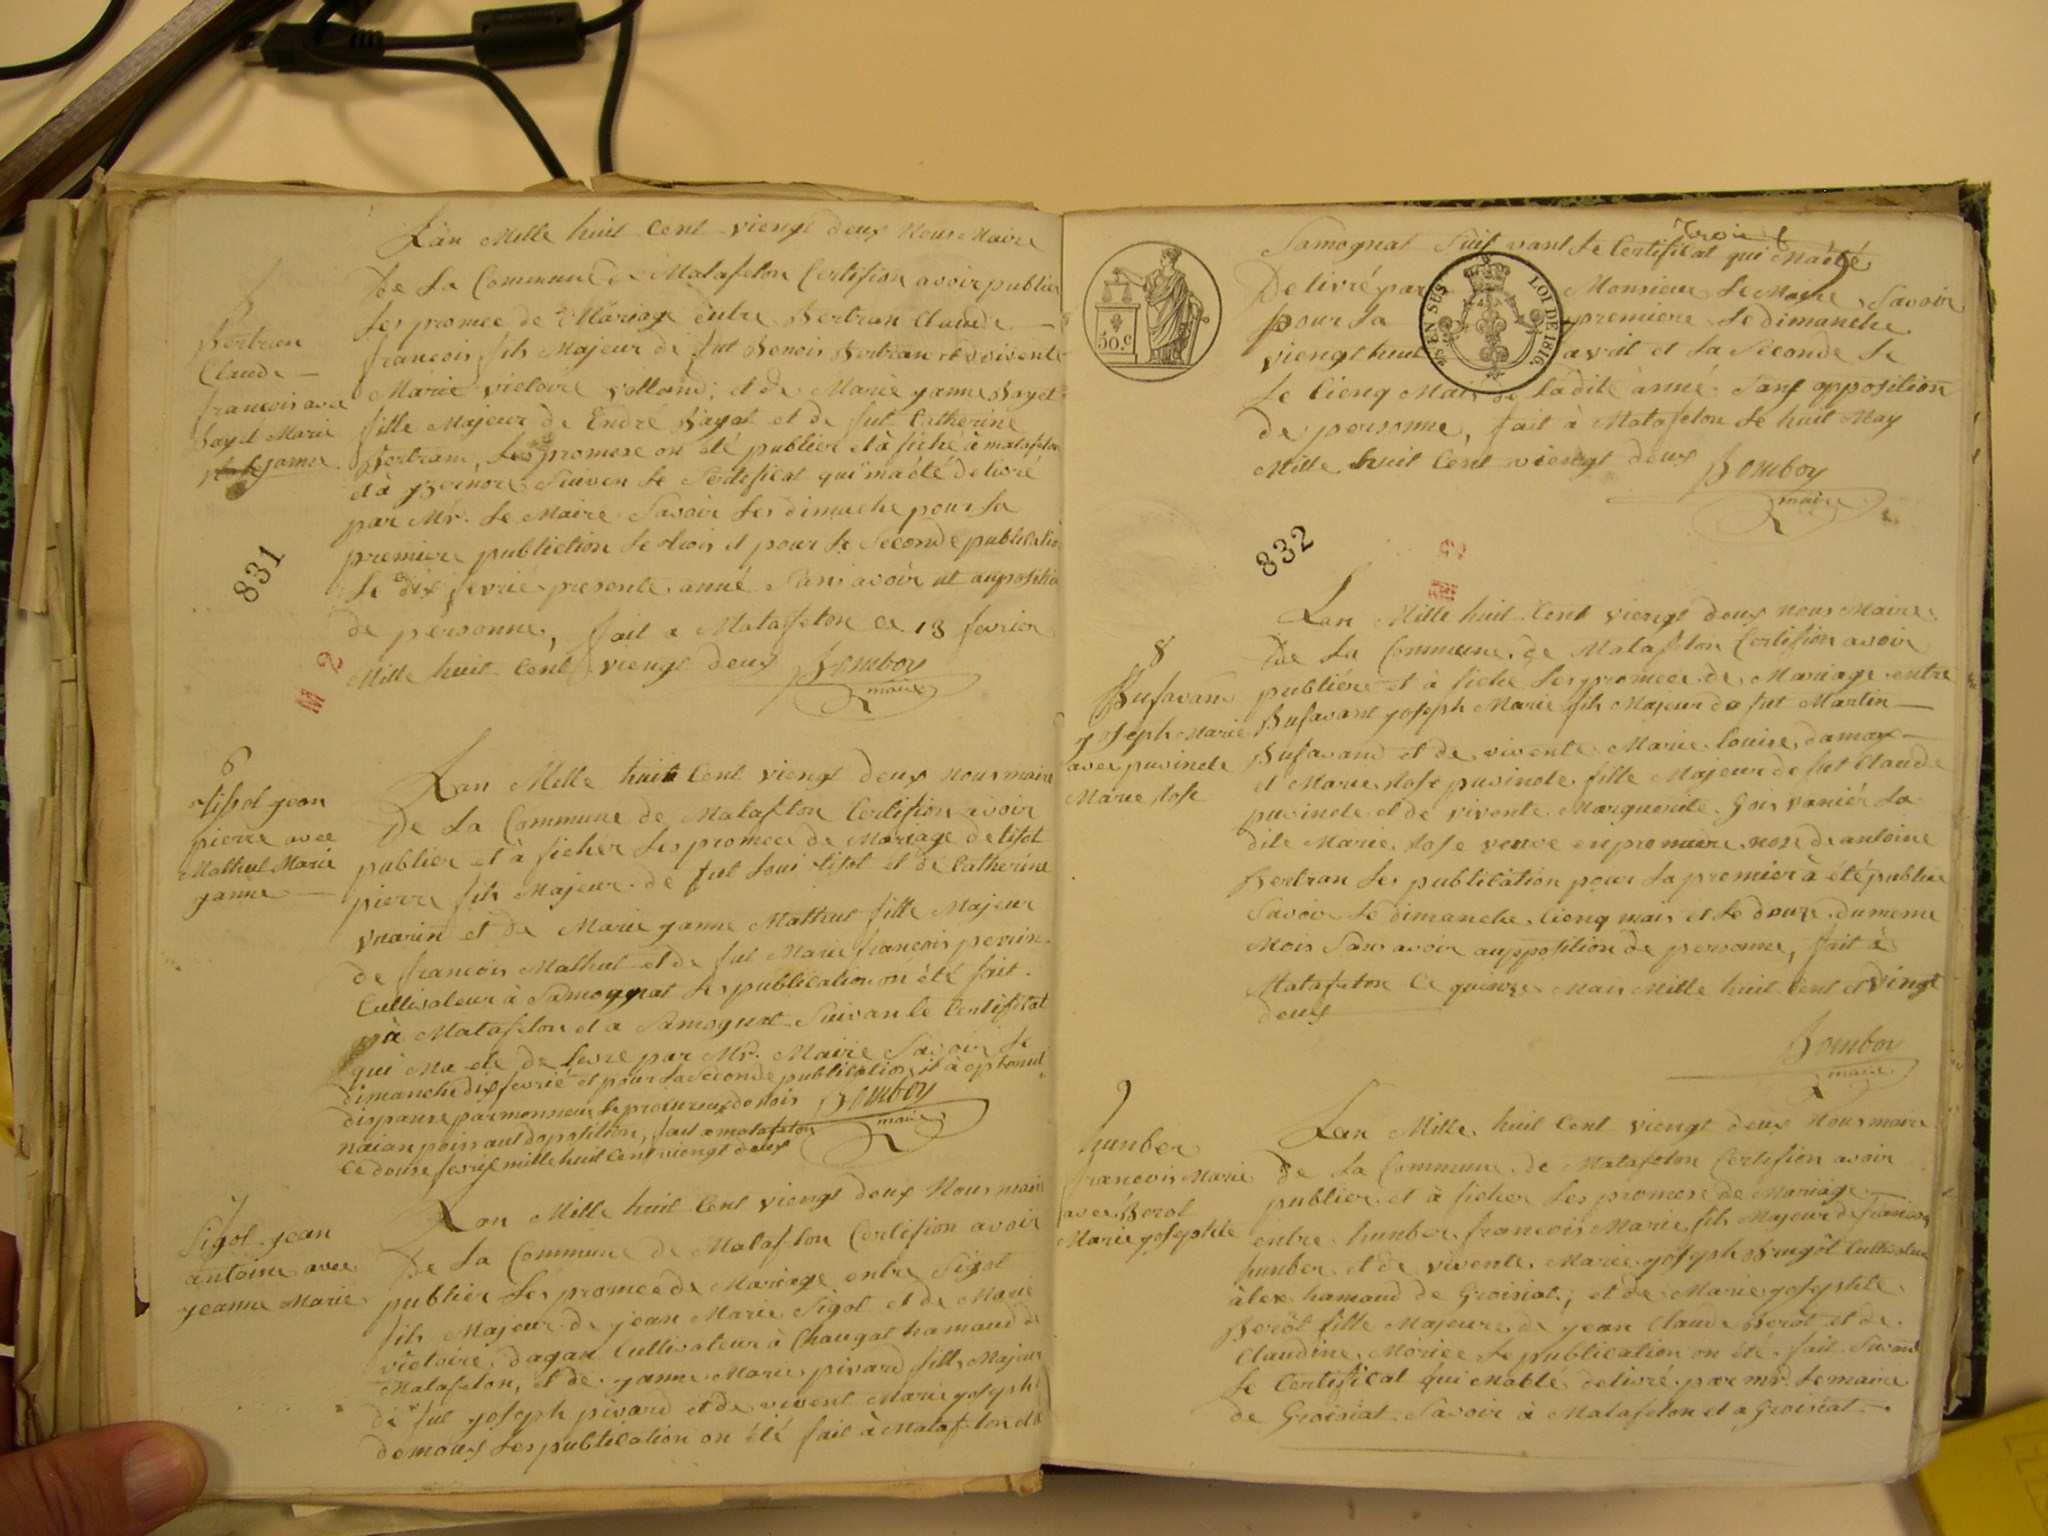 Lan Mille huit Cent viengt deux Nous Maire
de La Commune de Matafelon Certifion avoir publier
Les promee de Mariage entre Bertran Claude
francois fils Majeur de fut Benois Bertran et vivente
Marie victoire volland; et de Marie janne Bayet
fille Majeur de Endré Bayet et de fut Catherine
Bertran, Les promese on été publier et à fiché à matafelon
et à Suiven Le Certificat qui ma été delivré
par Mr. Le Maire Savoir Les dimache pour La
premiere publiction Le trois et pour Le Seconde publication
Le dix fevrié presente anné Sans avoir ut aupositio
de personne, fait a Matafelon ce 13 fevrier
Mille huit Cent viengt deux Bomboy
maire
Bertran
Claude
francois avec
Bayet Marie
janne
831
M 2
6
tissot jean
pierre avec
Mathut Marie
janne
Lan Mille huit Cent viengt deux nous maire
De La Commune de Matafelon Certifion avoir
publier et à ficher Les promee de Mariage de tisot
pierre fils Majeur de fut Loui tisot et de Catherine
vuarin et de Marie janne Mathut fille Majeur
de francois Mathut et de fut Marie francois perrin
Cultivateur à Samognat Les publication on été fait
à Matafelon et a Samognat Suivan le Certificat
qui Ma ete de Livre par Mr. Maire Savoir Le
dimanche dix fevrié et pour La Seconde publication il à eptenut
dispanse par monsieur Le procureur do Rois Bomboy
naian poins aut doposition, fait a matafelon maire
Ce douse fevrié mille huit Cent viengt deux
7
Sigot jean
antoine avec
jeanne Marie
Lan Mille huit Cent viengt deux Nous mair
de La Commune de Matafelon Certifion avoir
publier Les promee de Mariage entre Sigot
fils Majeur de jean Marie Sigot et de Marie
victoire dagan Cultivateur à Chaugat hamaud de
Matafelon, et de janne Marie pivard fille Majeur
de fut joseph pivard et de vivent Marie joseph
demoux Les publication on été fait à Matafelon et a
trois
Samognat Suit vant Le Certificat qui Maété
Delivré par Monsieur Le Maire Savoir
pour La premiere Le dimanche
viengt huit avril et La Seconde Le
Le Cienq Mais de Ladite anné Sans opposition
de personne, fait à Matafelon Le huit May
Mille huit Cent viengt deux Bomboy
maire
50.c
EN SUS
LOI DE 1816
832
8
Bufavand
joseph Marie
avec puvinele
Marie Rose
Lan Mille huit Cent viengt deux nous Maire
De La Commune de Matafelon Certifion avoir
publiére et à fiche Les promeee de Mariage entre
Bufavant joseph Marie fils Majeur de fut Martin
Bufavand et de vivente Marie Louise damay
et Marie Rose puvinele fille Majeur de fut Claude
puvinele et de vivente Marguerite Gois vanier La
dite Marie Rose veuve en premiere nose de antoine
Bertran Les publication pour La premier à été publier
Savoir Le dimanche Cienq mais et Le douze du meme
Mois Sans avoir aupposition de personne, fait à
Matafelon Ce quienze Mais Mille huit Cent et vingt
deux
Bomboy
maire
9
hunber
francois Marie
avec Berot
Marie josephte
Lan Mille huit Cent viengt deux Nous maire
de La Commune de Matafelon Certifion avoir
publier et à ficher Les promese de Mariage
entre hunber francois Marie fils Majeur de francois
hunber et de vivente Marie joseph Brugôt Cultivateur
àlex hamaud de Groisiat; et de Marie josephte
Berôt fille Majeure de jean Claude Berôt et de
Claudine Moriee Le publication on été fait Suivant
Le Certificat qui enable delivré par mr. Lemaire
de Groisiat Savoir à Matafelon et a Groisiat